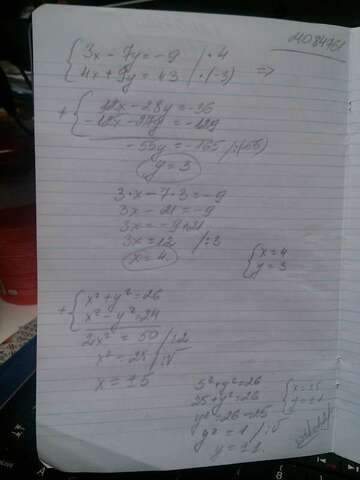 3x - 7y = -9 | · 4
4x + 9y = 43 | · (-3) =>
+ 12x - 28y = -36
-12x - 27y = -129
-55y = -165 / :(-55)
y = 3
3·x - 7·3 = -9
3x - 21 = -9
3x = -9+21
3x = 12 /:3
x = 4
x = 4
y = 3
+ x² + y² = 26
x² - y² = 24
2x² = 50 /:2
x² = 25 /:√
x = ±5
5² + y² = 26
25 + y² = 26
y² = 26 - 25
y² = 1 /:√
y = ±1
x = ±5
y = ±1